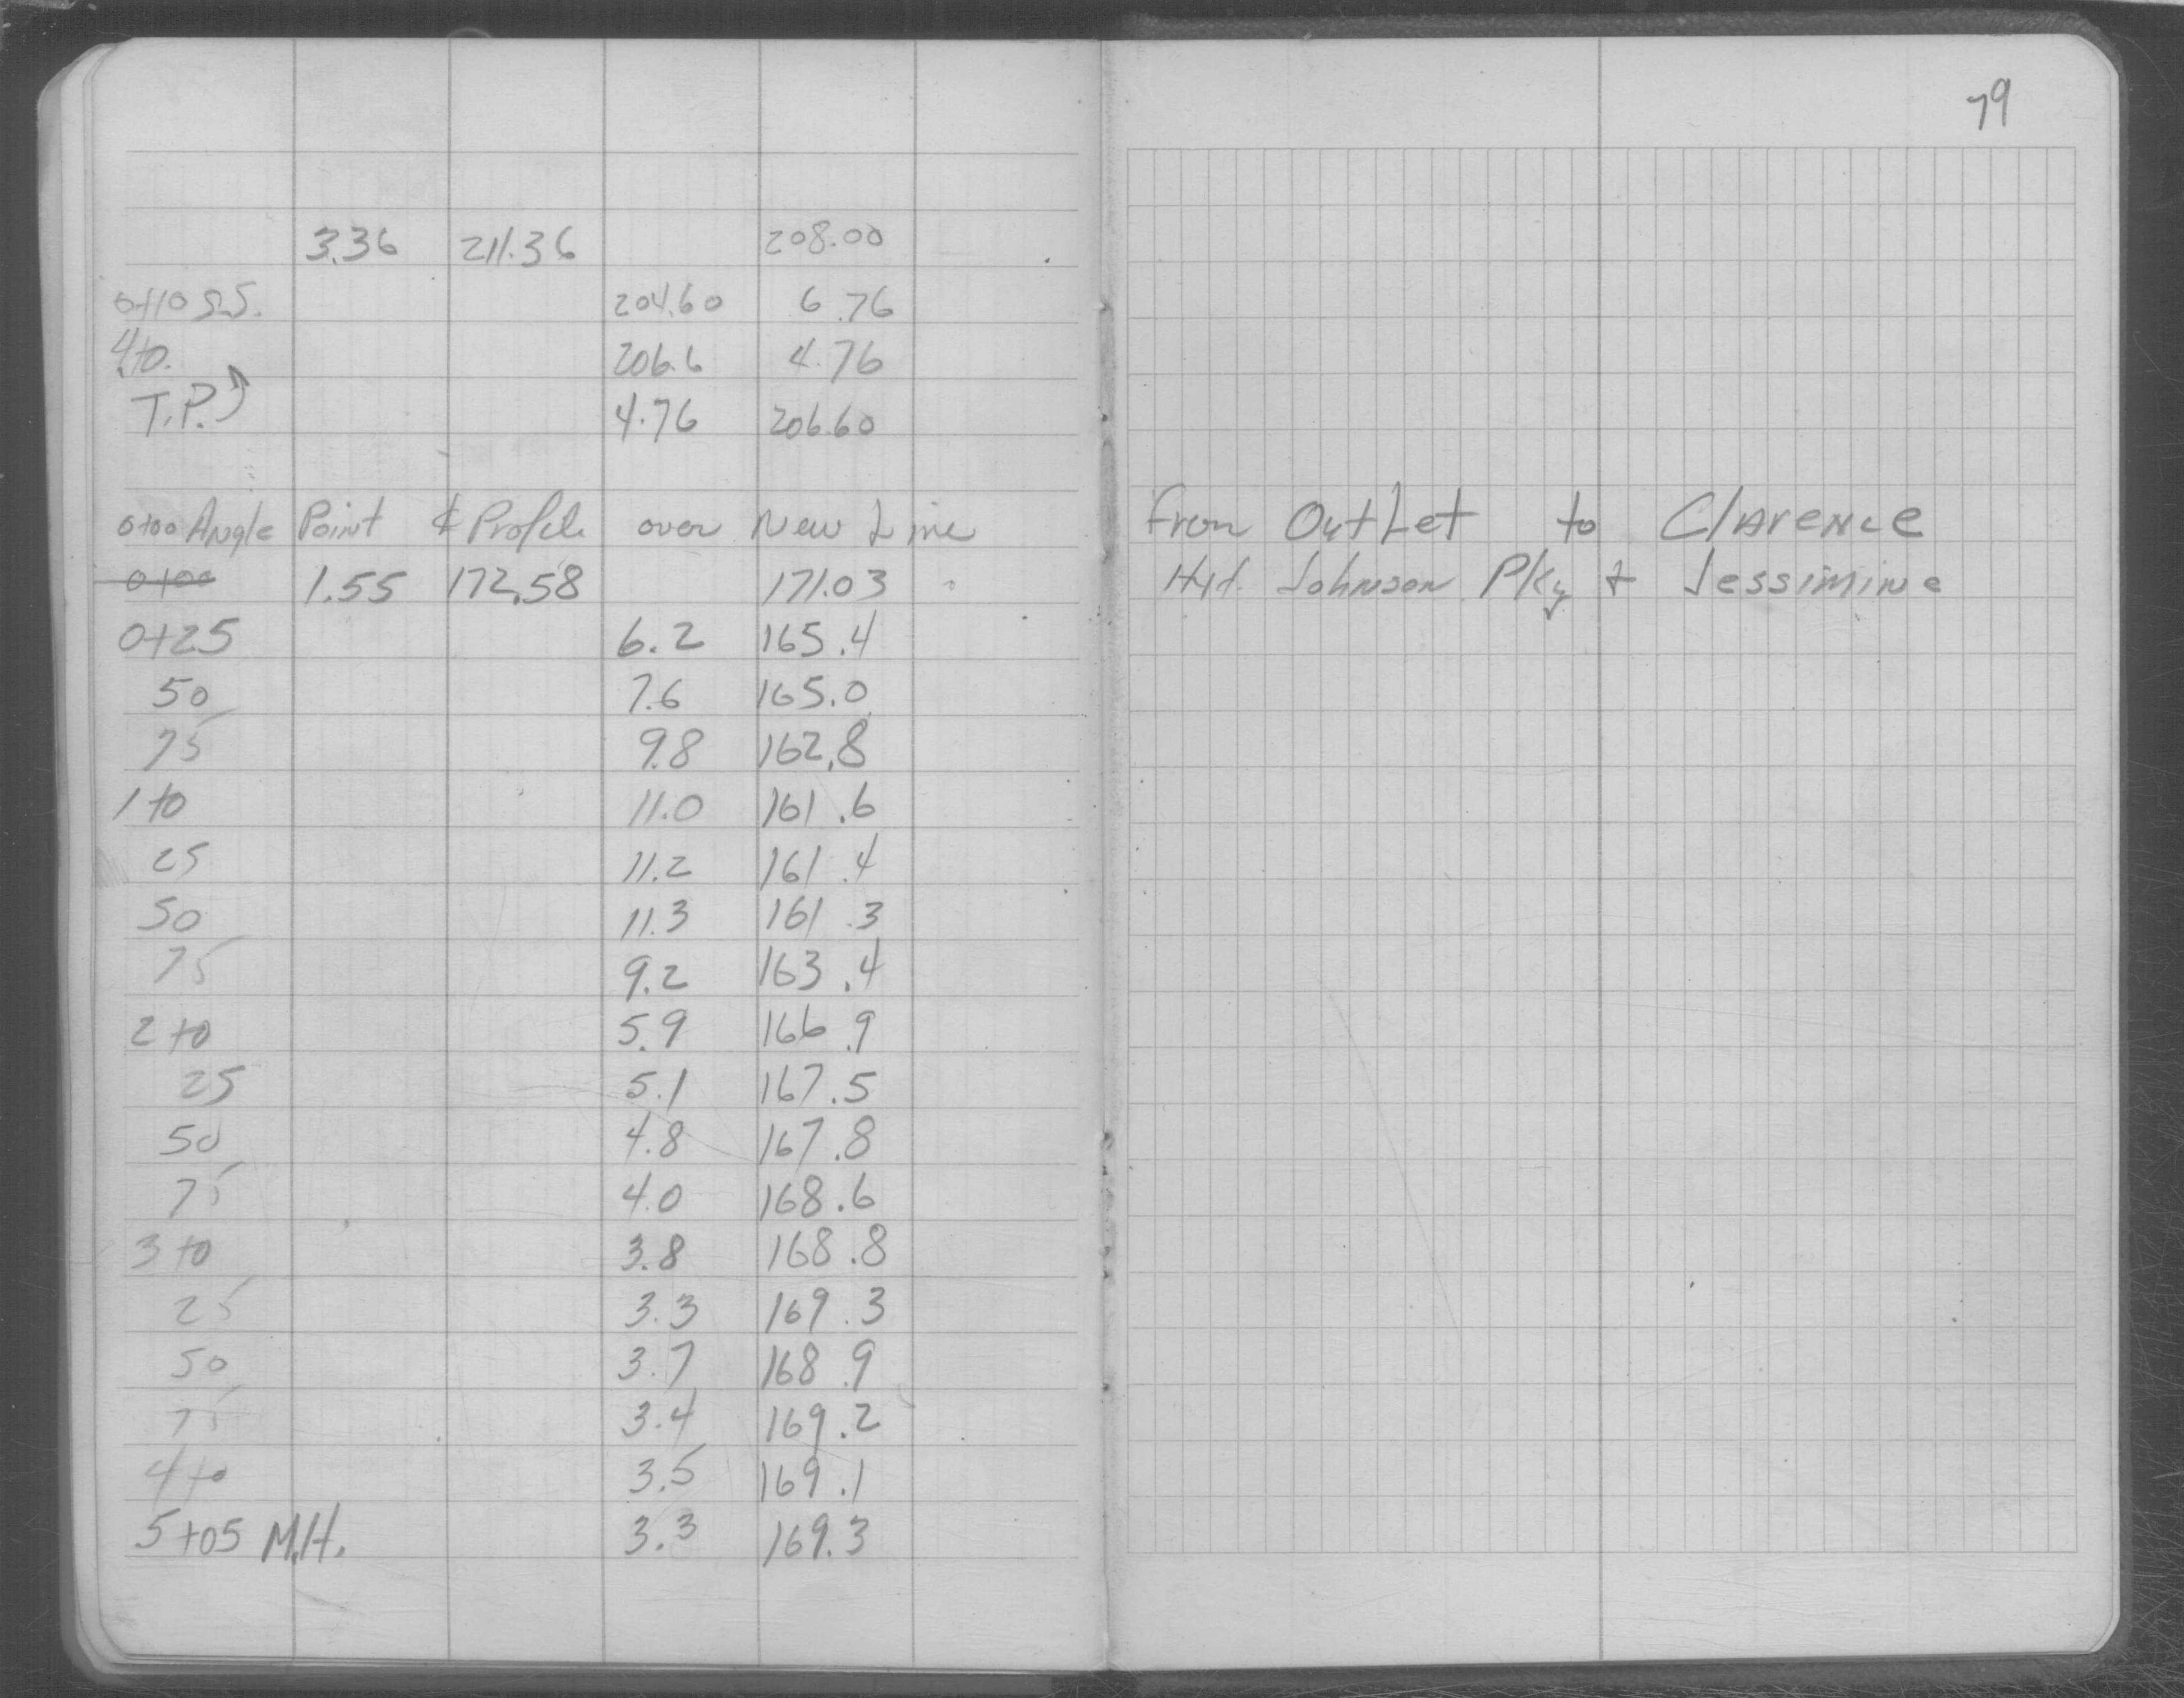 79
3.36 211.36 208.00
0+10 S.S. 204.60 6.76
4+0. 206.6 4.76
T.P. 4.76 206.60
0+00 Angle Point ₵ Profile over New Line From Outlet to Clarence
0+00 1.55 172.58 171.03 Hyd. Johnson Pky & Jessimine
0+25 6.2 165.4
50 7.6 165.0
75 9.8 162.8
1+0 11.0 161.6
25 11.2 161.4
50 11.3 161.3
75 9.2 163.4
2+0 5.9 166.9
25 5.1 167.5
50 4.8 167.8
75 4.0 168.6
3+0 3.8 168.8
25 3.3 169.3
50 3.7 168.9
75 3.4 169.2
4+0 3.5 169.1
5+05 M.H. 3.3 169.3